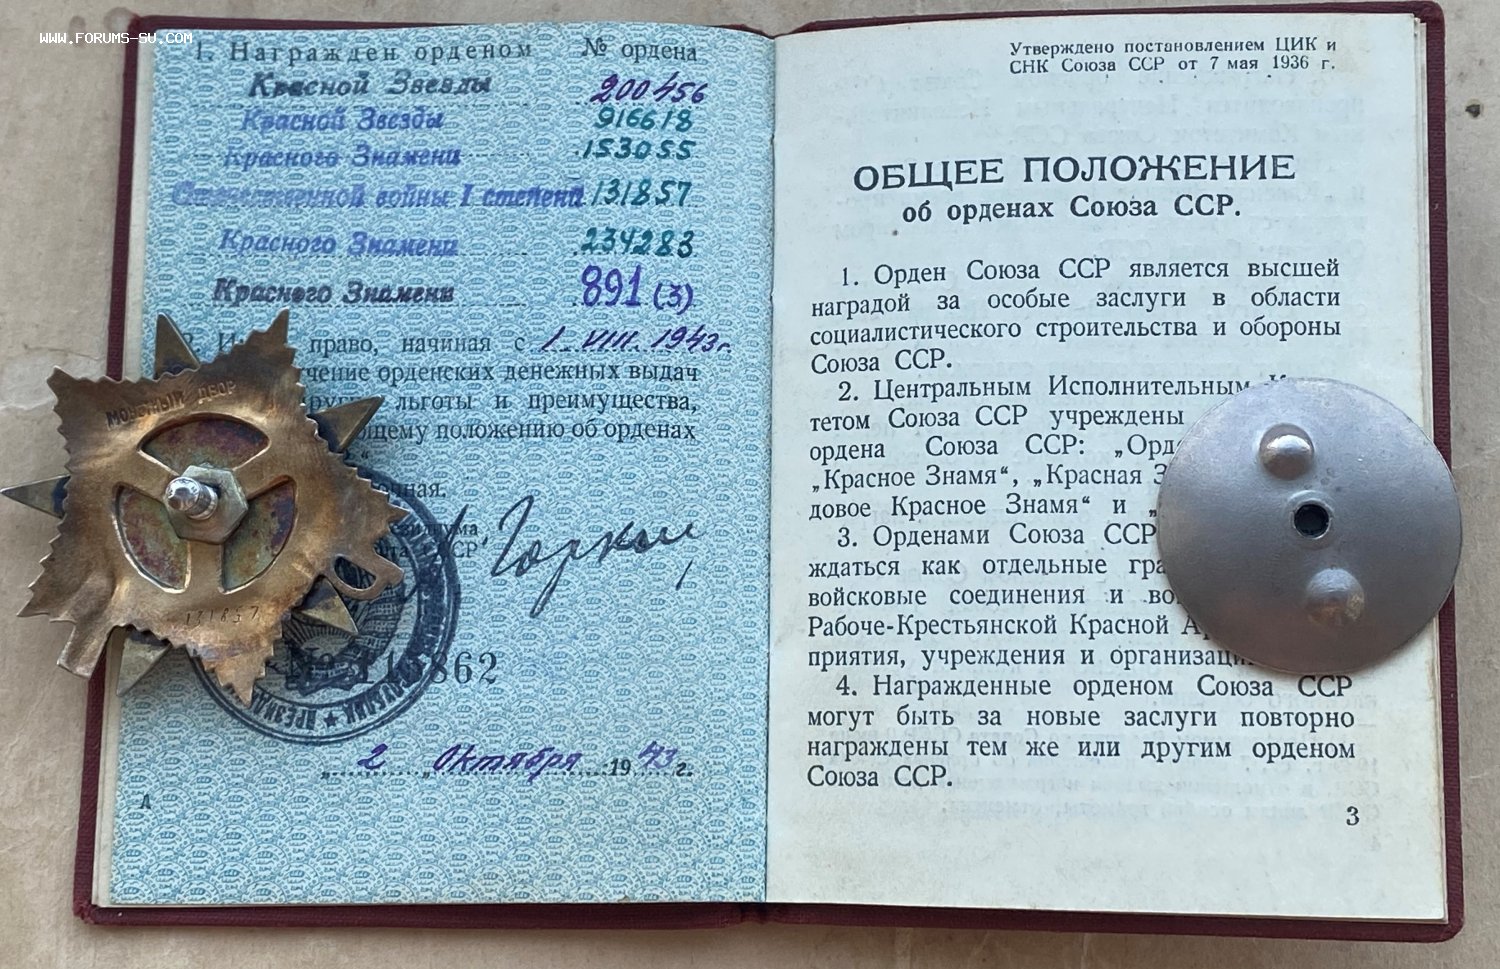 www.forums-su.com
1. Награжден орденом № ордена
Красной Звезды 200456
Красной Звезды 916618
Красного Знамени 153055
Отечественной войны I степени 131857
Красного Знамени 234283
Красного Знамени 891 (3)
право, начиная с 1. VIII. 1943 г.
орденских денежных выдач
льготы и преимущества,
положению об орденах
Горкин
862
„ 2 „ Октября 1943 г.
А
МОНЕТНЫЙ ДВОР
131857
Утверждено постановлением ЦИК и
СНК Союза ССР от 7 мая 1936 г.
ОБЩЕЕ ПОЛОЖЕНИЕ
об орденах Союза ССР.
1. Орден Союза ССР является высшей
наградой за особые заслуги в области
социалистического строительства и обороны
Союза ССР.
2. Центральным Исполнительным
тетом Союза ССР учреждены
ордена Союза ССР:
„Красное Знамя“, „Красная
довое Красное Знамя“ и
3. Орденами Союза ССР
ждаться как отдельные
войсковые соединения и
Рабоче-Крестьянской Красной
приятия, учреждения и
4. Награжденные орденом Союза ССР
могут быть за новые заслуги повторно
награждены тем же или другим орденом
Союза ССР.
3